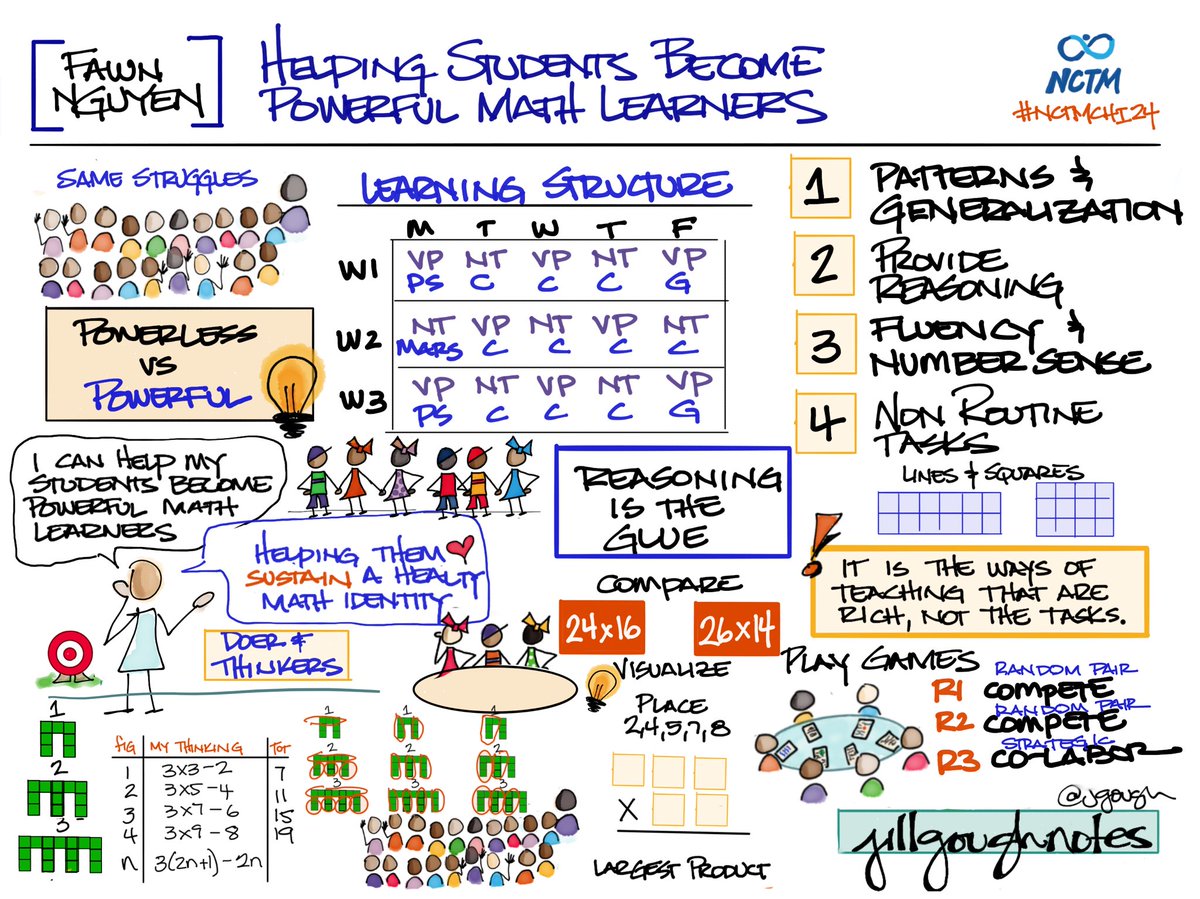 FAWN
NGUYEN
HELPING STUDENTS BECOME
POWERFUL MATH LEARNERS
NCTM
#NCTMCHI24
SAME STRUGGLES
POWERLESS
VS
POWERFUL
LEARNING STRUCTURE
M T W T F
W1 VP NT VP NT VP
PS C C C G
W2 NT VP NT VP NT
MARS C C C C
W3 VP NT VP NT VP
PS C C C G
1 PATTERNS &
GENERALIZATION
2 PROVIDE
REASONING
3 FLUENCY &
NUMBER SENSE
4 NON ROUTINE
TASKS
LINES & SQUARES
I CAN HELP MY
STUDENTS BECOME
POWERFUL MATH
LEARNERS
HELPING THEM
SUSTAIN A HEALTY
MATH IDENTITY
DOER &
THINKERS
REASONING
IS THE
GLUE
COMPARE
24x16 26x14
VISUALIZE
PLACE
2,4,5,7,8
X
LARGEST PRODUCT
! IT IS THE WAYS OF
TEACHING THAT ARE
RICH, NOT THE TASKS.
PLAY GAMES
RANDOM PAIR
R1 COMPETE
RANDOM PAIR
R2 COMPETE
STRATEGIC
R3 CO-LABOR
@jgough
jillgoughnotes
1
2
3
fig MY THINKING TOT
1 3x3-2 7
2 3x5-4 11
3 3x7-6 15
4 3x9-8 19
n 3(2n+1)-2n
1 1 1
2 2 2
3 3 3